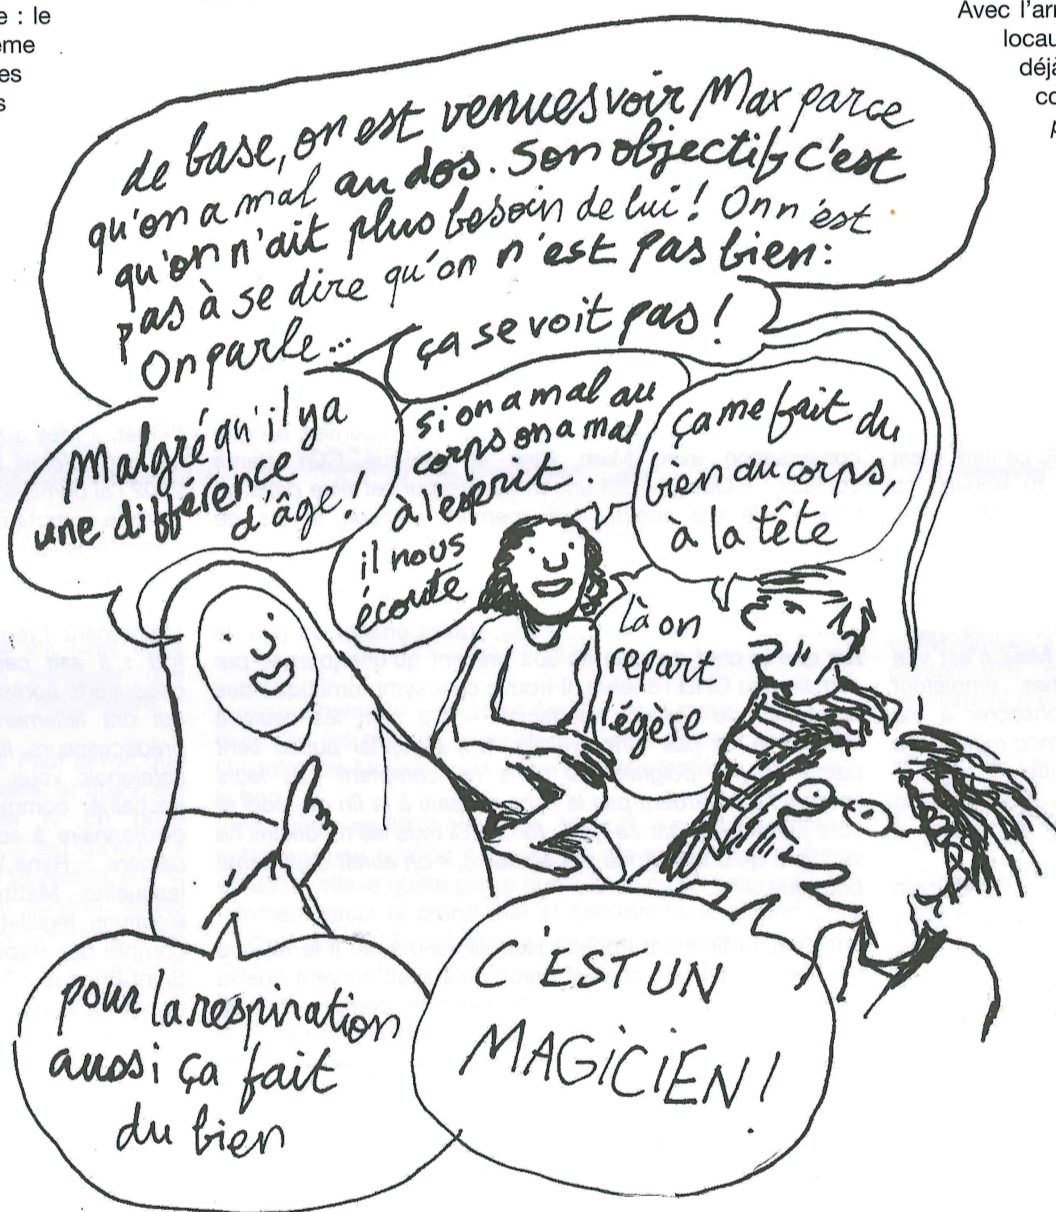 e : le
ème
es
s
Avec l'arr
locau
déjà
co
p
de base, on est venues voir Max parce
qu'on a mal au dos. Son objectif c'est
qu'on n'ait plus besoin de lui ! On n'est
pas à se dire qu'on n'est pas bien :
On parle...
ça se voit pas !
Malgré qu'il y a
une différence
d'âge.
si on a mal au
corps on a mal
à l'esprit :
il nous
écoute
ça me fait du
bien au corps,
à la tête
là on
repart
légèse
pour la respiration
aussi ça fait
du bien
C'EST UN
MAGICIEN !